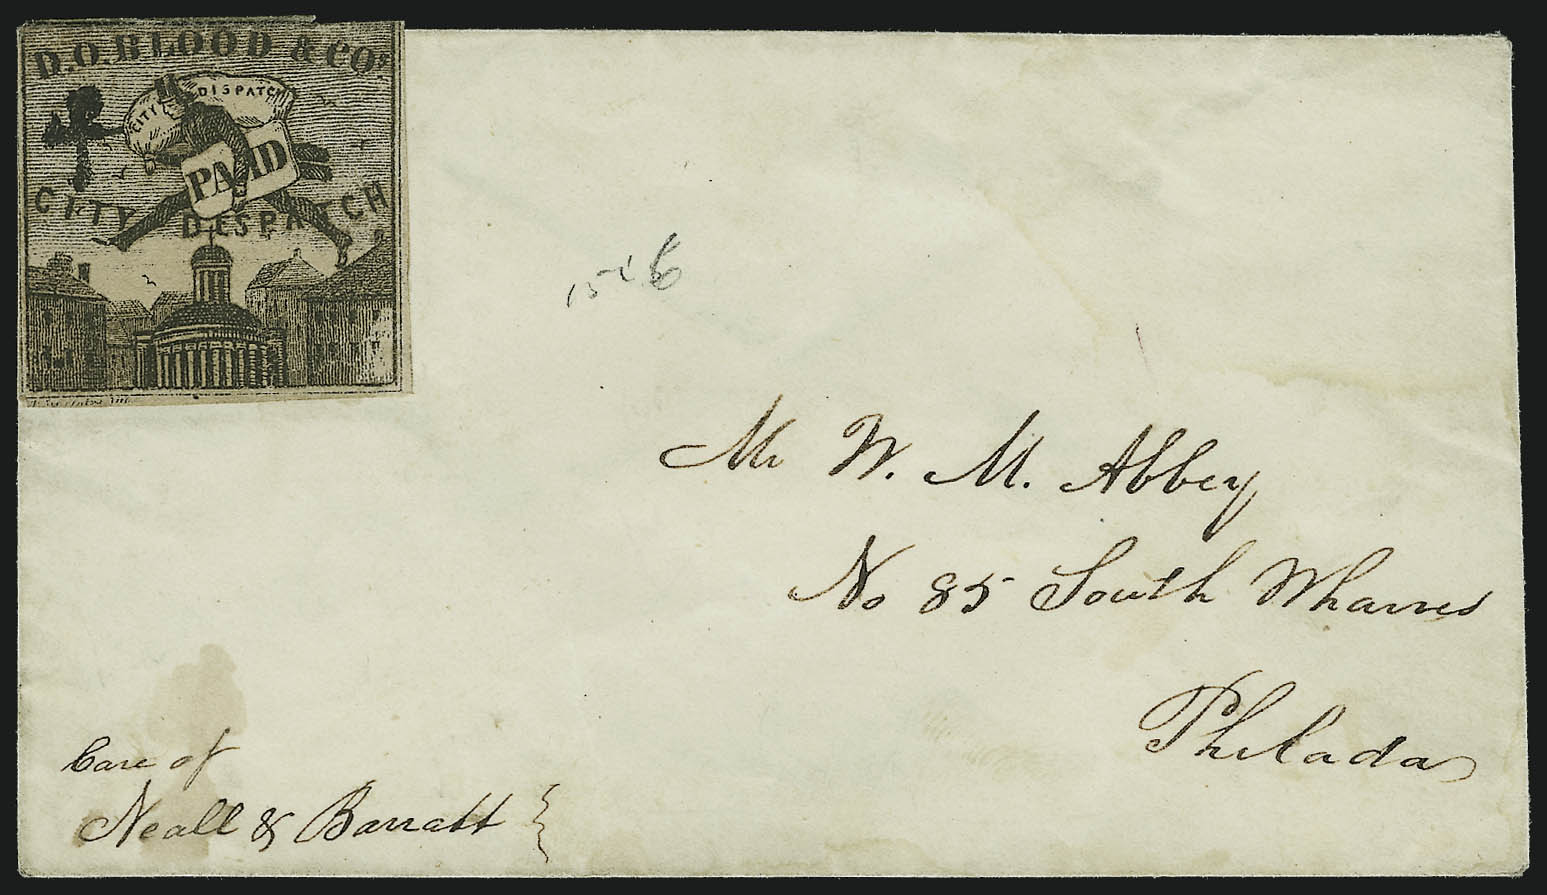 D.O.BLOOD & CO'S
CITY DISPATCH
PAID
CITY DESPATCH
Mr W. M. Abbey
No 85 South Wharves
Philada
Care of
Neall & Barratt